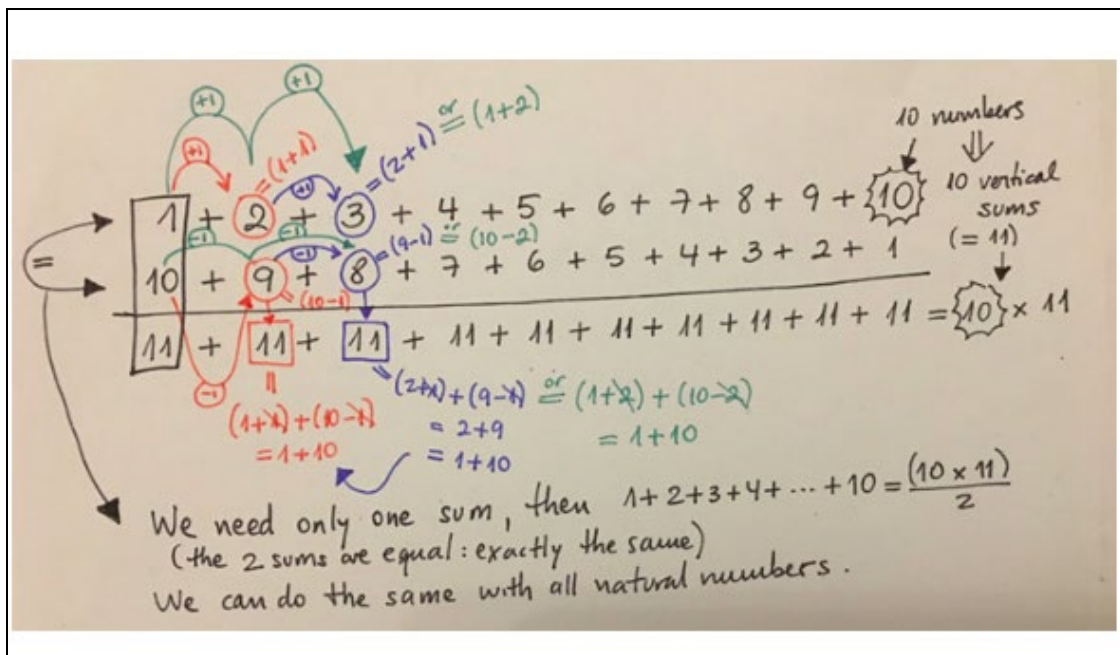 +1 +1
+1 =(1+1) +1 =(2+1) or = (1+2) 10 numbers
1 + 2 + 3 + 4 + 5 + 6 + 7 + 8 + 9 + 10 10 vertical sums (= 11)
-1 -1 -1 (9-1) or = (10-2)
= 10 + 9 + 8 + 7 + 6 + 5 + 4 + 3 + 2 + 1
= (10-1)
11 + 11 + 11 + 11 + 11 + 11 + 11 + 11 + 11 + 11 = 10 × 11
-1 = = (2+1) + (9-1) or = (1+2) + (10-2)
(1+1)+(10-1) = 2+9 = 1+10
= 1+10 = 1+10
We need only one sum, then 1+2+3+4+ ... +10 = (10 x 11) / 2
(the 2 sums are equal : exactly the same)
We can do the same with all natural numbers.